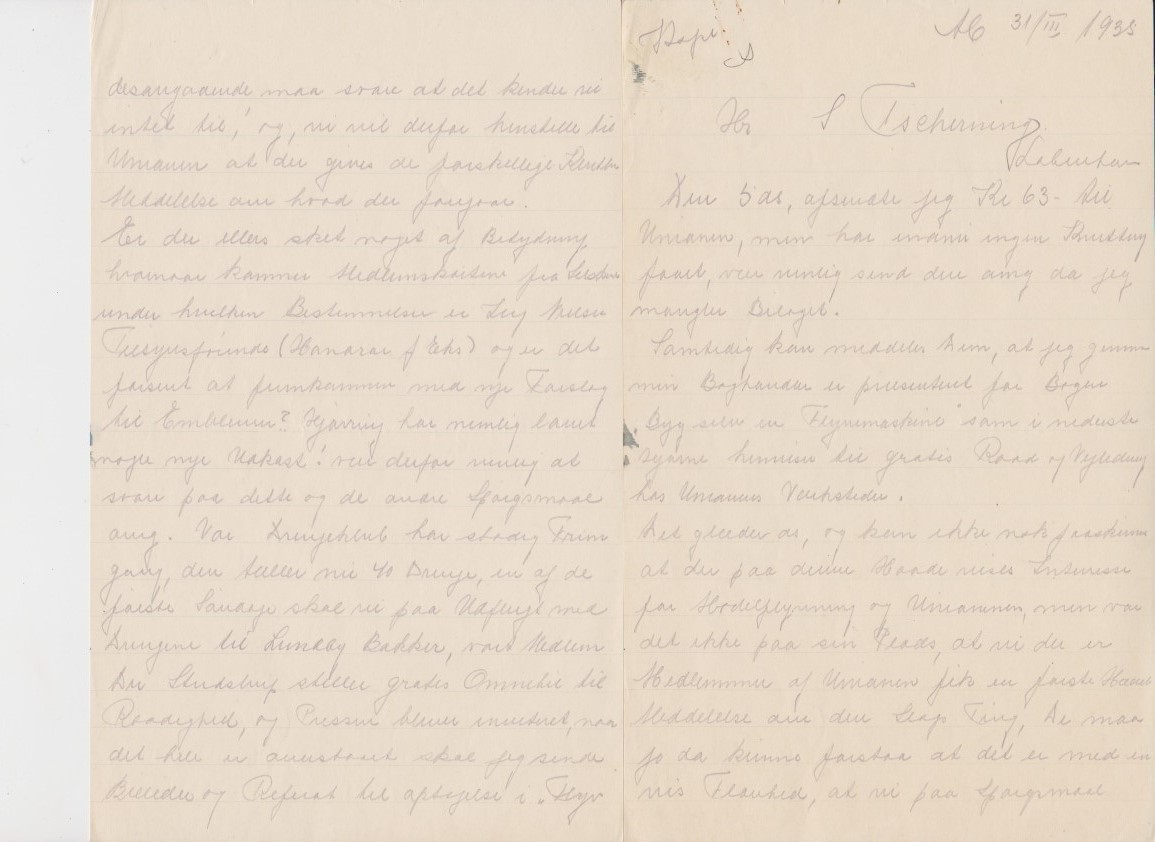 Kopi.
Ab 31/III 1935
Hr S Tscherning.
København
Den 5 ds, afsendte jeg Kr 63- til
Unionen, men har endnu ingen Kvittering
faaet, vær venlig send den omg da jeg
mangler Bilaget.
Samtidig kan meddeles Dem, at jeg gennem
min Boghandler er præsenteret for Bogen
"Byg selv en Flyvemaskine" som i nederste
Hjørne henviser til gratis Raad og Vejledning
hos Unionens Værksteder.
Det glæder os, og kan ikke nok paaskønnes
at der paa denne Maade vises Interesse
for Modelflyvning og Unionen, men var
det ikke paa sin Plads, at vi der er
Medlemmer af Unionen fik en første Haands
Meddelelse om den Slags Ting, De maa
jo da kunne forstaa at det er med en
vis Flovhed, at vi paa Spørgsmaal
desangaaende maa svare at det kender vi
intet til, og, vi vil derfor henstille til
Unionen at der gives de forskellige Klubber
Meddelelse om hvad der foregaar.
Er der ellers sket noget af Betydning
hvornaar kommer Medlemskortene fra
under hvilken Bestemmelser er Ing Nielsen
Tilsynsførende (Honorar f Eks) og er det
forsent at fremkomme med nye Forslag
til Emblemer? Hjørring har nemlig lavet
nogle nye Udkast! vær derfor venlig at
svare paa dette og de andre Spørgsmaal
omg. Vor Drengeklub har stadig Frem
gang, den tæller nu 40 Drenge, en af de
første Søndage skal vi paa Udflugt med
Drengene til Lundby Bakker, vort Medlem
Dir Studstrup stiller gratis Omnibil til
Raadighed, og Pressen bliver inviteret, naar
det hele er overstaaet skal jeg sende
Billeder og Referat til optagelse i "Flyv